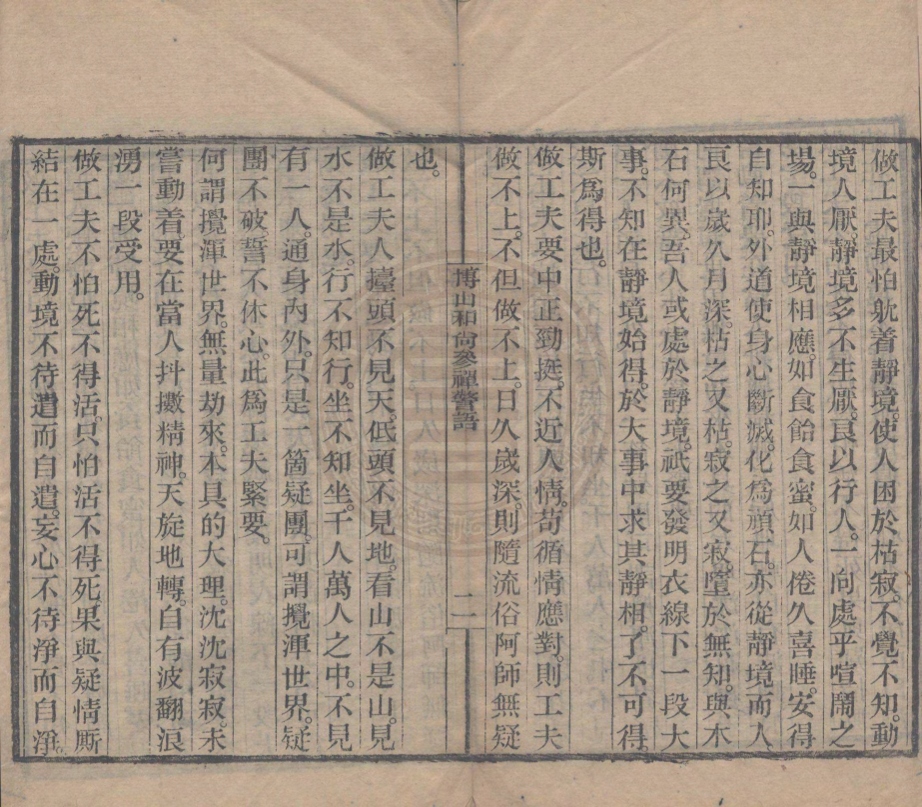 做工夫最怕躭着靜境。使人困於枯寂。不覺不知。動
境人厭。靜境多不生厭。良以行人。一向處乎喧鬧之
場。一與靜境相應。如食飴食蜜。如人倦久喜睡。安得
自知耶。外道使身心斷滅。化爲頑石。亦從靜境而入
良以歲久月深。枯之又枯。寂之又寂。墮於無知。與木
石何異。吾人或處於靜境。祇要發明衣線下一段大
事。不知在靜境始得。於大事中求其靜相。了不可得。
斯爲得也。
做工夫要中正勁挺。不近人情。苟循情應對。則工夫
做不上。不但做不上。日久歲深。則隨流俗阿師無疑
博山和尚參禪警語
二
也。
做工夫人擡頭不見天。低頭不見地。看山不是山。見
水不是水。行不知行。坐不知坐。千人萬人之中。不見
有一人。通身內外。只是一箇疑團。可謂攪渾世界。疑
團不破。誓不休心。此爲工夫緊要。
何謂攪渾世界。無量劫來。本具的大理。沈沈寂寂。未
嘗動着。要在當人抖擻精神。天旋地轉。自有波翻浪
湧一段受用。
做工夫不怕死不得活。只怕活不得死。果與疑情厮
結在一處。動境不待遣而自遣。妄心不待淨而自淨。